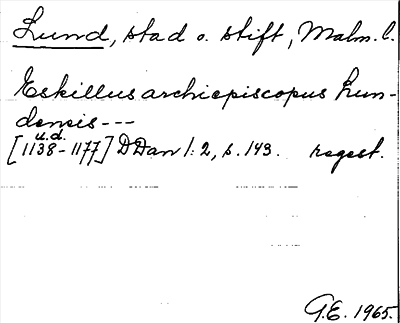 Lund, stad o. stift, Malm. l.
Eskillus archiepiscopus Lun-
densis ---
u.d.
[1138-1177] DDan 1:2, s. 143. regest.
G.E. 1965.